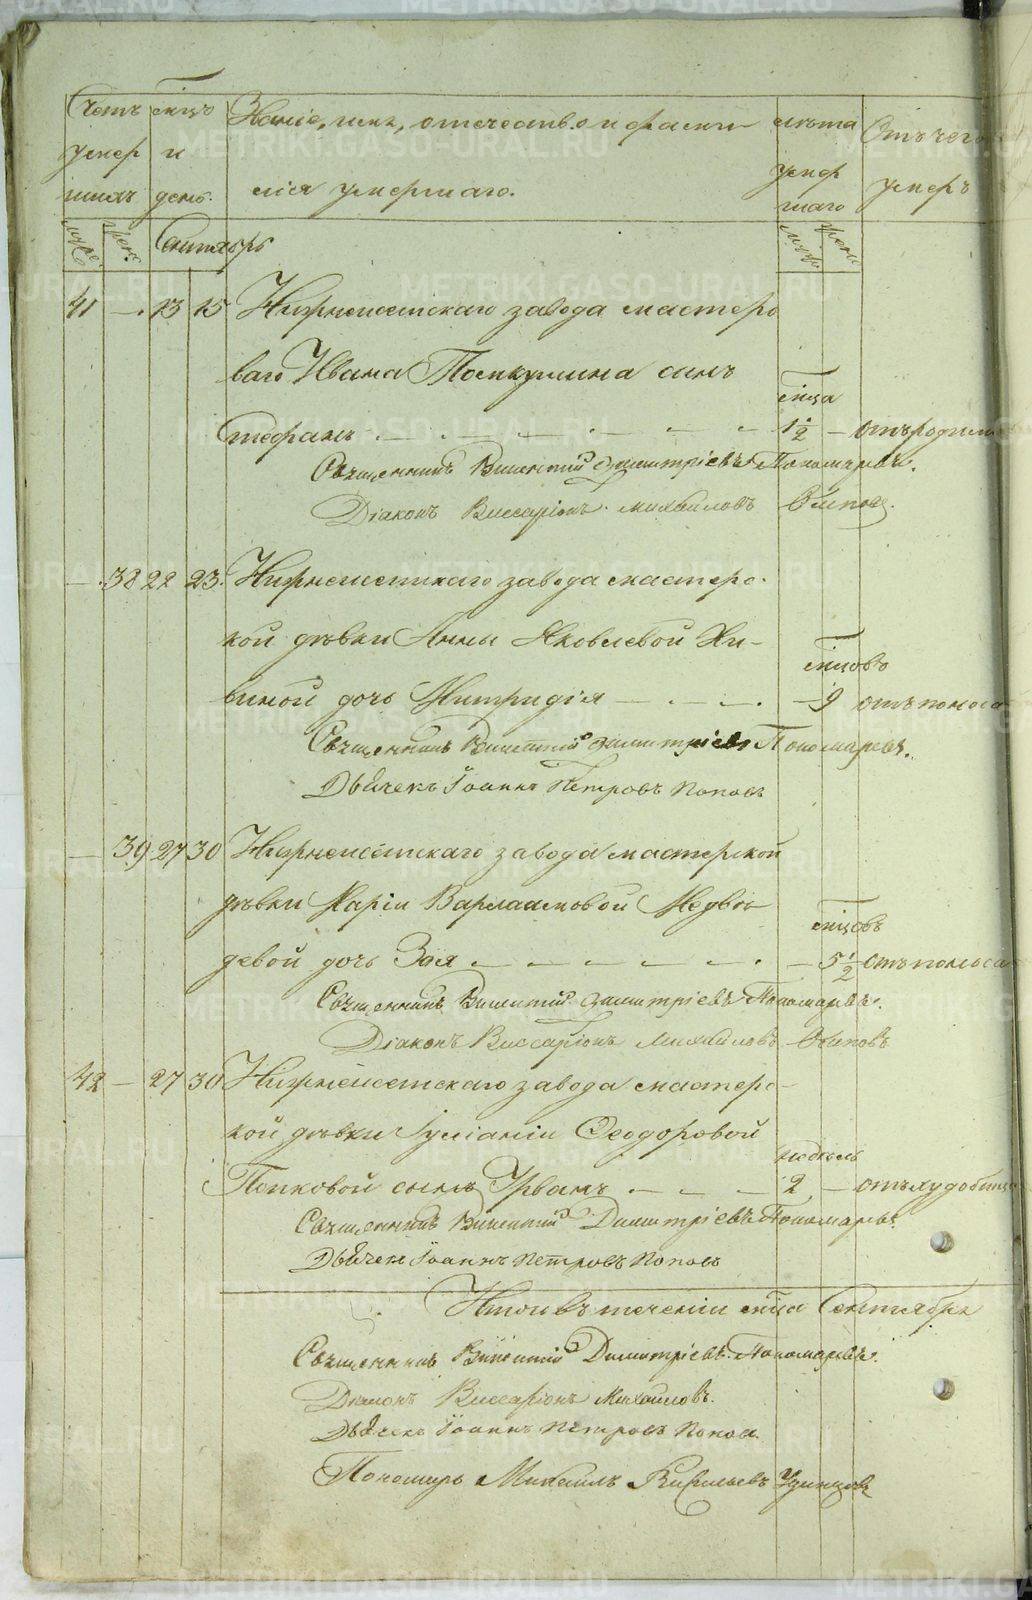 Счетъ мѣсцъ Званіе, имя, отечество и фами лѣта Отъ чего
умер и умер
шихъ день. лія умершаго. шаго умеръ
муж. жен. Сентябрь муж. жен.
41 — 13 15 Нижнесетскаго завода мастеро
ваго Ивана сынъ мѣсца
Стефанъ 1 1/2 — отъ родимца
Священникъ Викентий Димитріевъ Пономаревъ.
Діаконъ Виссаріонъ Михайловъ Осиповъ.
— 38 22 23 Нижнесетскаго завода мастерс-
кой дѣвки Анны Яковлевой Хи- мѣсцовъ
виной дочь — 9 отъ поноса
Священникъ Викентий Димитріевъ Пономаревъ.
Дьячекъ Іоаннъ Петровъ Поповъ
— 39 27 30 Нижнесетскаго завода мастерской
дѣвки Маріи Варлаамовой Медвѣ мѣсцовъ
девой дочь Зоя — 5 1/2 отъ поноса
Священникъ Викентий Димитріевъ Пономаревъ.
Діаконъ Виссаріонъ Михайловъ Осиповъ
42 — 27 30 Нижнесетскаго завода мастерс-
кой дѣвки Іуліаніи Ѳеодоровой недѣль
Попковой сынъ Урванъ 2 — отъ худобища
Священникъ Викентий Димитріевъ Пономаревъ.
Дьячекъ Іоаннъ Петровъ Поповъ
Итого въ теченіи мѣсца Сентября
Священникъ Викентий Димитріевъ Пономаревъ.
Діаконъ Виссаріонъ Михайловъ.
Дьячекъ Іоаннъ Петровъ Поповъ.
Пономарь Михаилъ Удинцовъ
METRIKI.GASO-URAL.RU